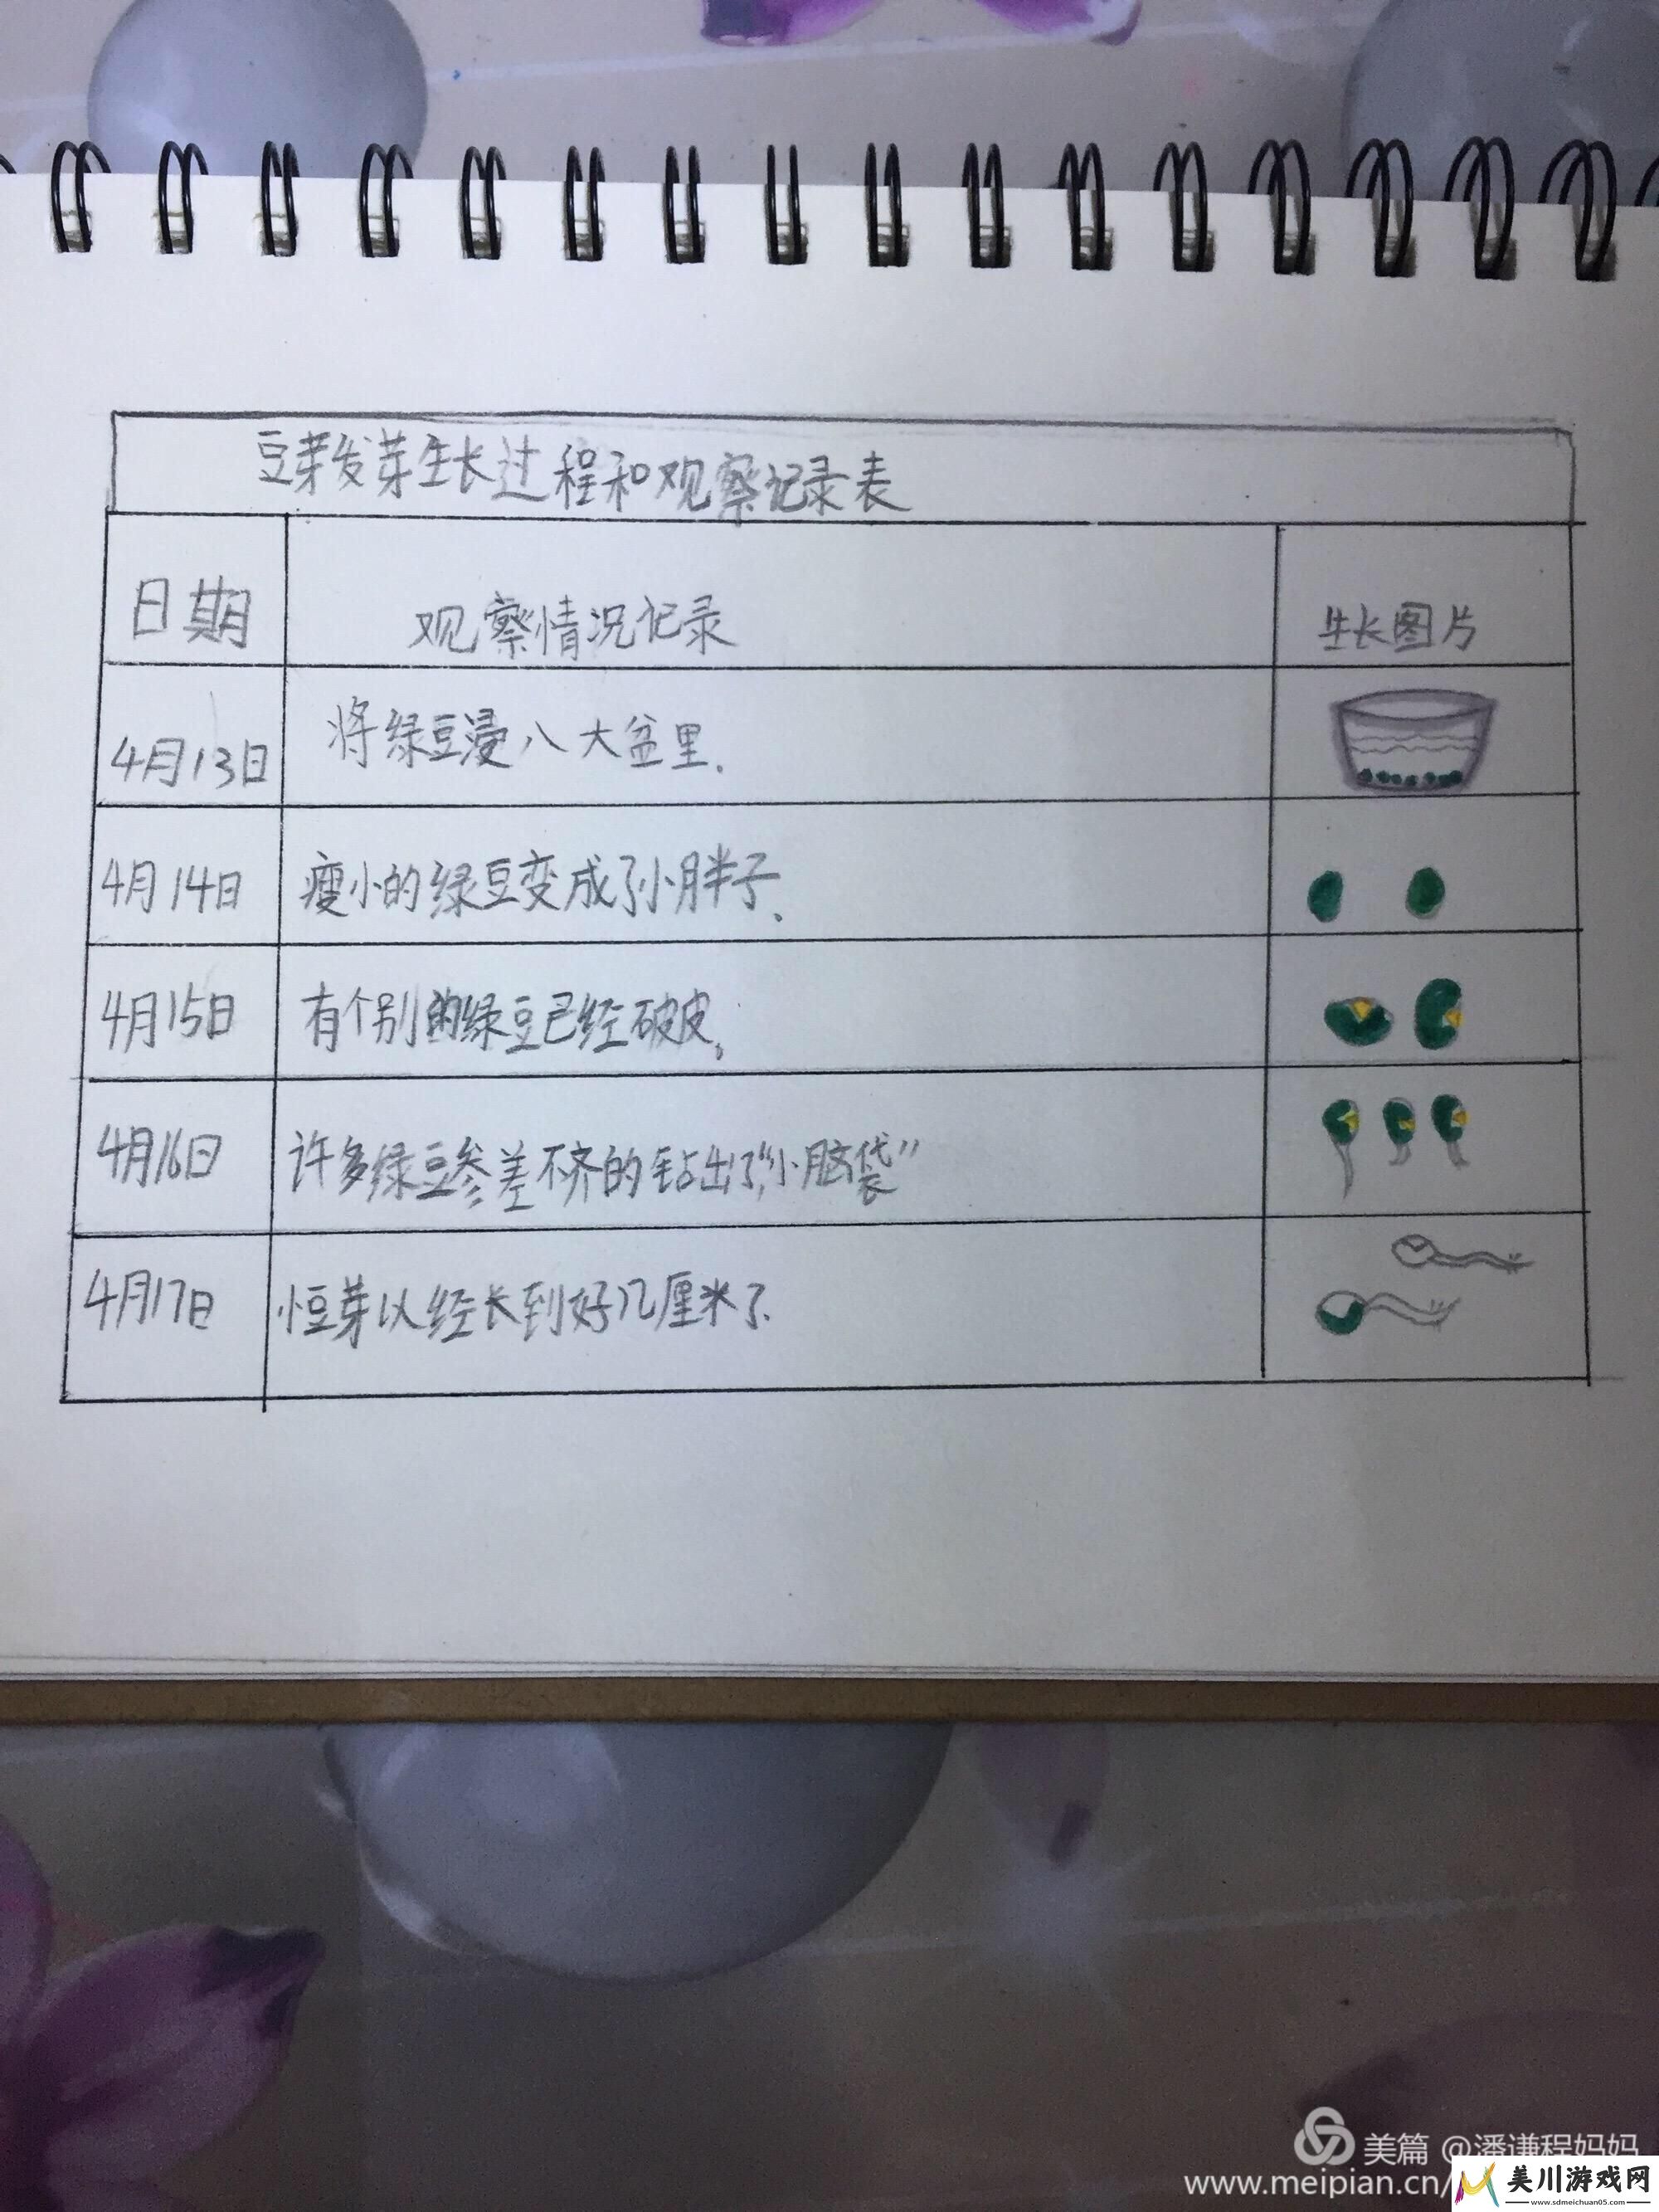 豆芽发芽生长过程和观察记录表
日期 观察情况记录 生长图片
4月13日 将绿豆浸八大盆里.
4月14日 瘦小的绿豆变成了小胖子、
4月15日 有个别的绿豆已经破皮。
4月16日 许多绿豆参差不齐的钻出了“小脑袋”
4月17日 小豆芽以经长到好几厘米了.
美篇 @潘谦程妈妈
www.meipian.cn/
美川游戏网
www.sdmeichuan05.com